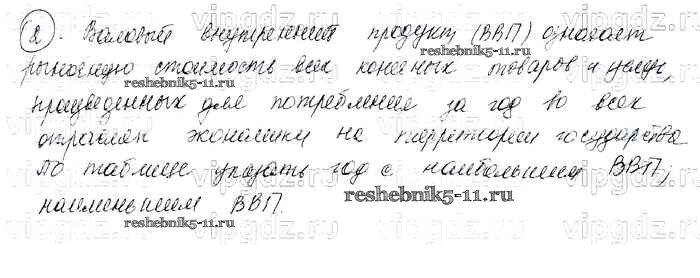 2. Валовый внутренний продукт (ВВП) означает
рыночную стоимость всех конечных товаров и услуг,
произведенных для потребления за год во всех
отраслях экономики на территории государства
По таблице указать год с наибольшим ВВП,
наименьшим ВВП.
reshebnik5-11.ru
reshebnik5-11.ru
reshebnik5-11.ru
vipgdz.ru